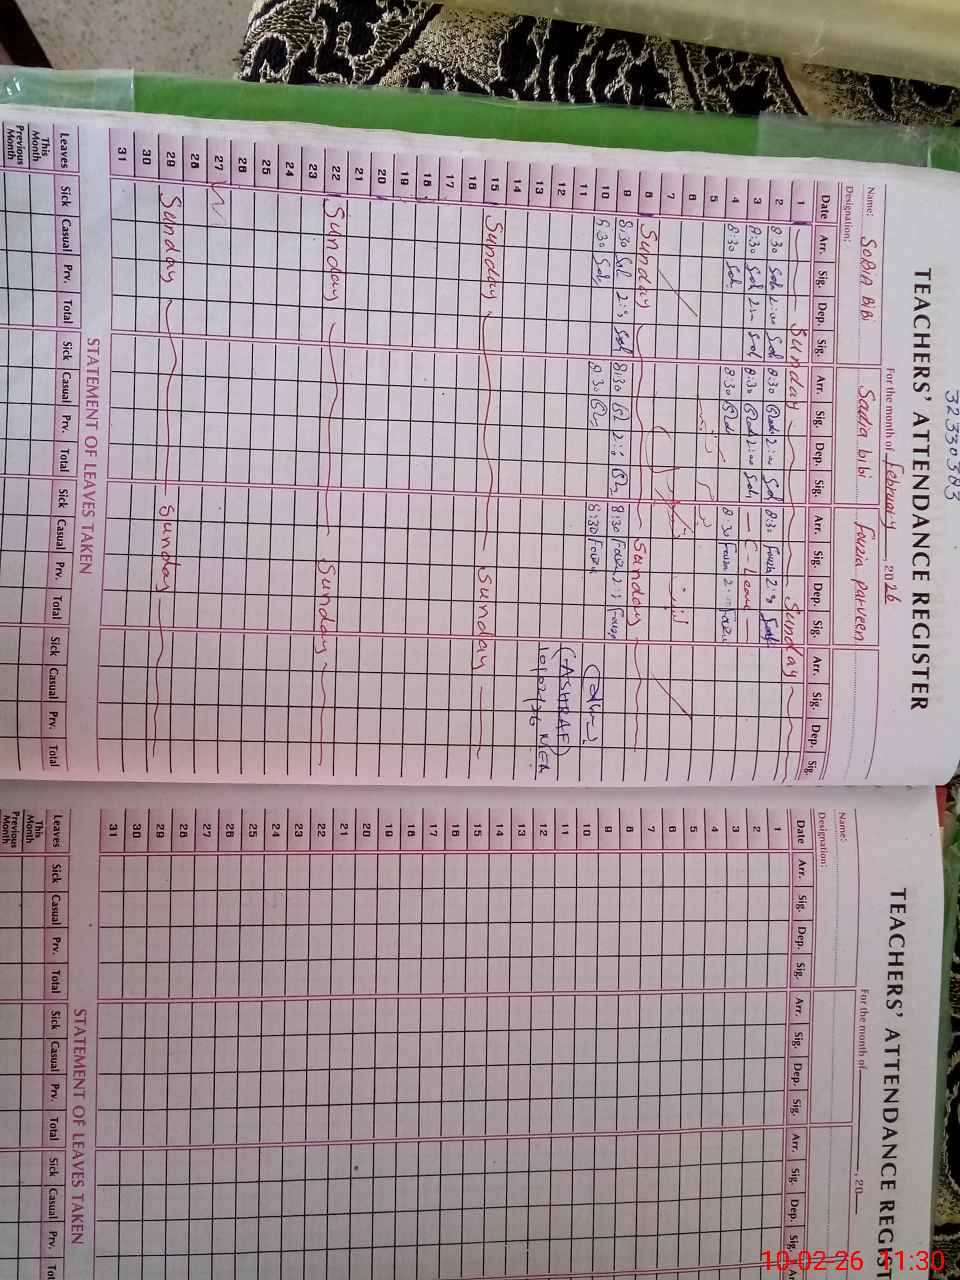 32330383
TEACHERS' ATTENDANCE REGISTER
For the month of February, 2026
Name: SOBIA BiBi Sadia bibi Fouzia Parveen
Designation:
Date Arr. Sig. Dep. Sig. Arr. Sig. Dep. Sig. Arr. Sig. Dep. Sig. Arr. Sig. Dep. Sig.
1 Sunday Sunday
2 8:30 8:30 8:30
3 8:30 8:30 C-Leave
4 8:30 8:30 8:30
5
6
7
8 Sunday Sunday
9 8:30 8:30 8:30
10 8:30 8:30 8:30
11
12 (ASHRAF)
13 10/02/26 MEA
14
15 Sunday Sunday
16
17
18
19
20
21
22 Sunday Sunday
23
24
25
26
27
28
29 Sunday Sunday
30
31
STATEMENT OF LEAVES TAKEN
Leaves Sick Casual Prv. Total Sick Casual Prv. Total Sick Casual Prv. Total Sick Casual Prv. Total
This Month
Previous Month
TEACHERS' ATTENDANCE REGIST
For the month of , 20
Name:
Designation:
Date Arr. Sig. Dep. Sig. Arr. Sig. Dep. Sig. Arr. Sig. Dep. Sig. A
1
2
3
4
5
6
7
8
9
10
11
12
13
14
15
16
17
18
19
20
21
22
23
24
25
26
27
28
29
30
31
STATEMENT OF LEAVES TAKEN
Leaves Sick Casual Prv. Total Sick Casual Prv. Total Sick Casual Prv. Tot
This Month
Previous Month
10-02-26 11:30